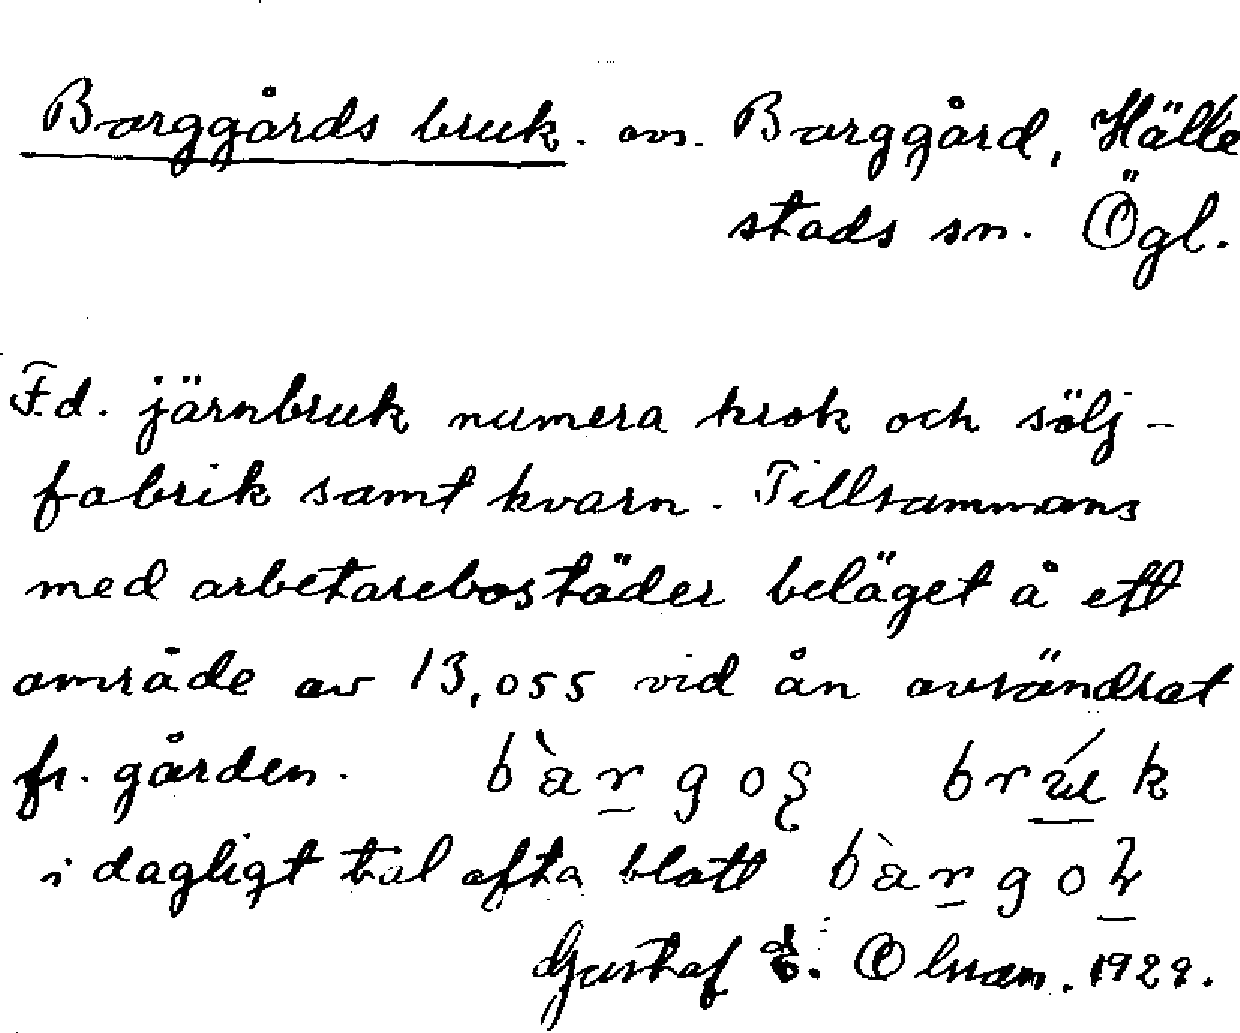 Borggårds bruk. avs. Borggård, Hälle
stads sn. Ögl.
F.d. järnbruk numera krok och sölj-
fabrik samt kvarn. Tillsammans
med arbetarebostäder beläget å ett
område av 13,055 vid ån avsöndrat
fr. gården. bàrgoş brúk
i dagligt tal ofta blott bàrgo
Gustaf Olsson. 1929.